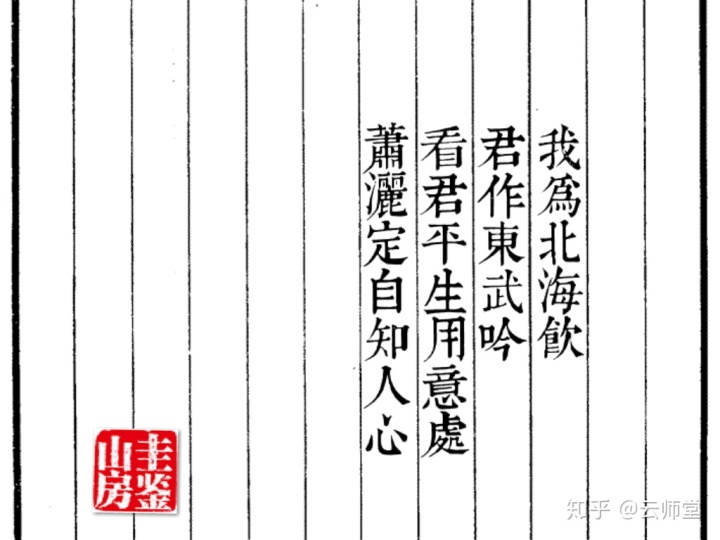 我為北海飲
君作東武吟
看君平生用意處
蕭灑定自知人心
圭鉴
山房
知乎 @云师堂